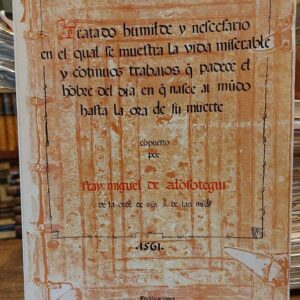 Tratado humilde y nescesario
en el qual se muestra la vida miserable
y cõtinuos trabaios q̃ padece el
hõbre del dia en q̃ nasce al mũdo
hasta la ora de su muerte
cõpuesto
por
fray miguel de alõsotegui
de la ordẽ de
-1561-
Publicaciones